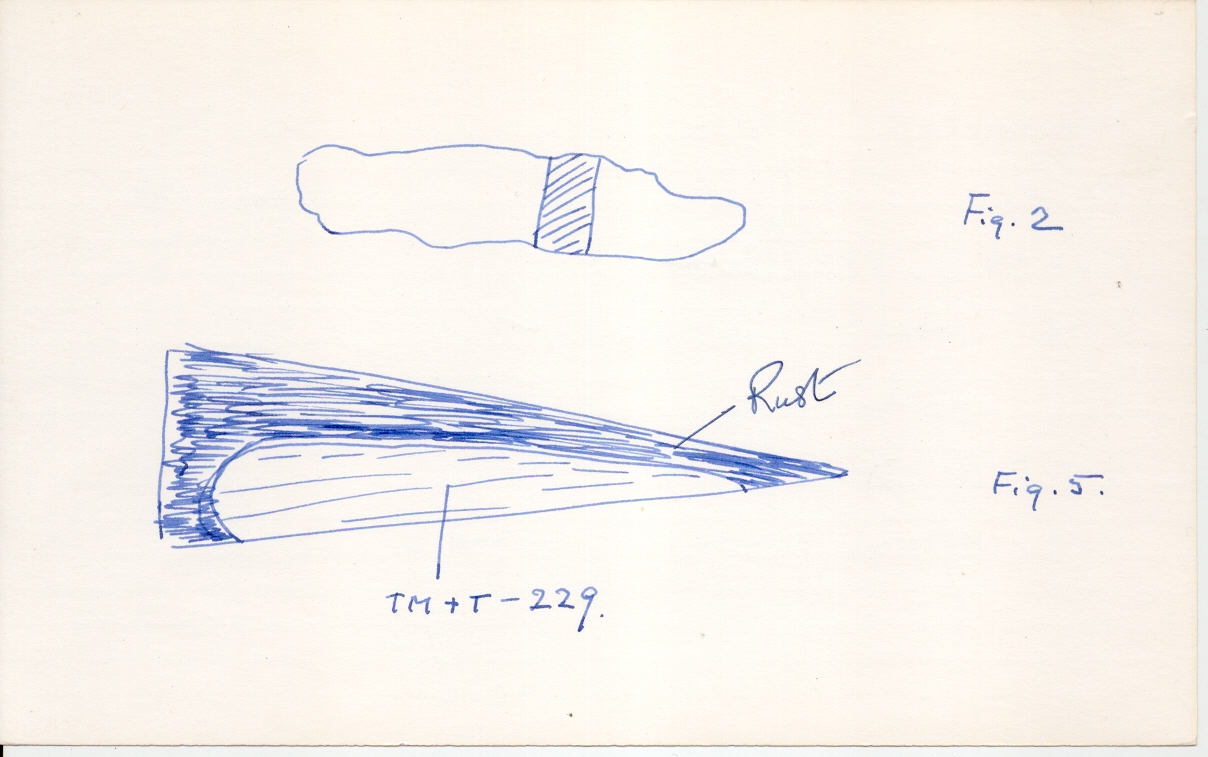 Fig. 2
Rust
Fig. 5.
TM+T-229.